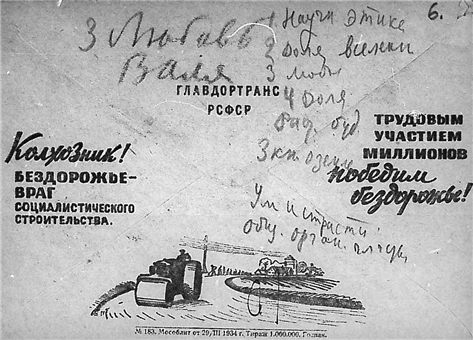 3 Любовь
Валя
1 Научн этика
2 Доля
3
4 Доля
6.
ГЛАВДОРТРАНС
РСФСР
Колхозник!
БЕЗДОРОЖЬЕ-
ВРАГ
СОЦИАЛИСТИЧЕСКОГО
СТРОИТЕЛЬСТВА.
ТРУДОВЫМ
УЧАСТИЕМ
МИЛЛИОНОВ
победим
бездорожье!
Ум и страсти
общ. орган.
№ 183. Мособлит от 29/III 1934 г. Тираж 1.000.000. Гознак.